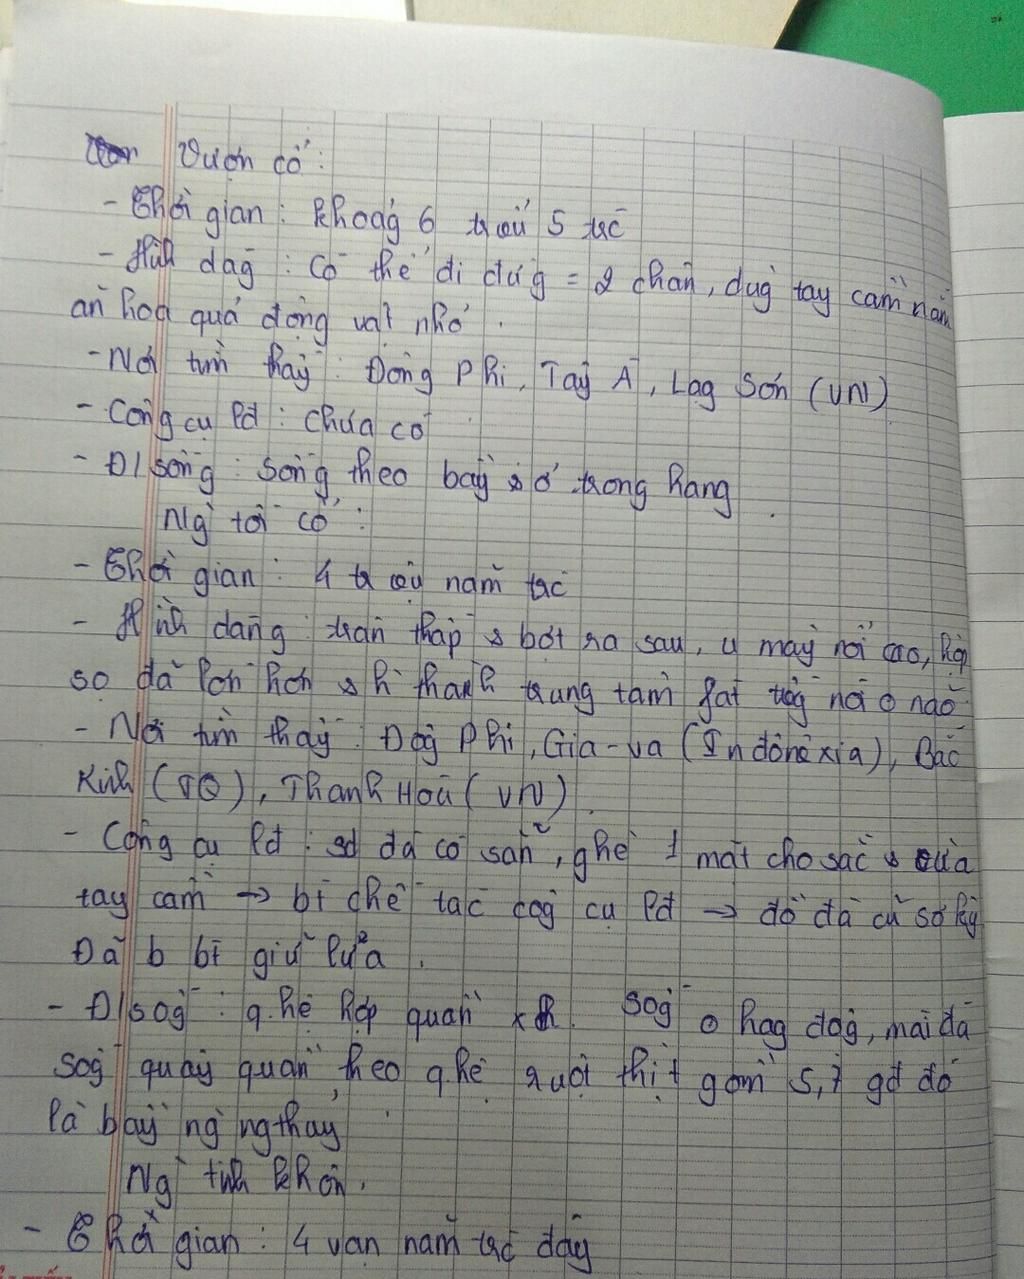 Vượn cổ:
- Thời gian: khoảg 6 triệu 5 trc
- Hìh dạg: Có thể đi đứg = 2 chân, dùg tay cầm nắm
ăn hoa quả động vật nhỏ.
- Nơi tìm thấy: Đông Phi, Tây Á, Lạg Sơn (VN)
- Công cụ lđ: chưa có
- Đ/sống: Sống theo bầy ở trong hang.
Ng tối cổ:
- Thời gian: 4 triệu năm trc
- Hìh dáng: trán thấp bớt ra sau, u mày nổi cao, hộp
sọ đã lớn hơn hìh thành trung tâm fát tiếg nói o não
- Nơi tìm thấy: Đôg Phi, Gia-va (Inđônêxia), Bắc
Kih (TQ), Thanh Hoá (VN).
- Công cụ lđ: sd đá có sẵn, ghè 1 mặt cho sắc vừa
tay cầm → bt chế tác côg cụ lđ → đồ đá cũ sơ kỳ
Đã b bt giữ lửa.
- Đ/sốg: q.hệ hợp quần xh. Sốg o hag độg, mái đá
sốg quây quần theo q.hệ ruột thịt gồm 5, 7 gđ đó
là bầy ng ngthủy
Ng tih khôn.
- Thời gian: 4 vạn năm trc đây